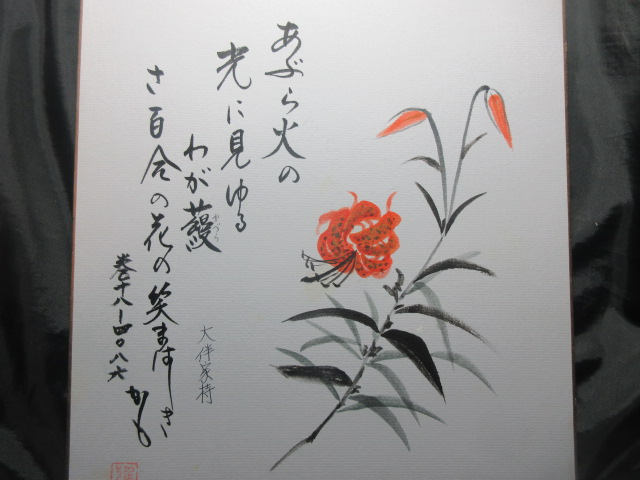 あぶら火の
光に見ゆる
わが蘰
かづら
さ百合の花の笑まはしきかも
大伴家持
巻十八―四〇八六